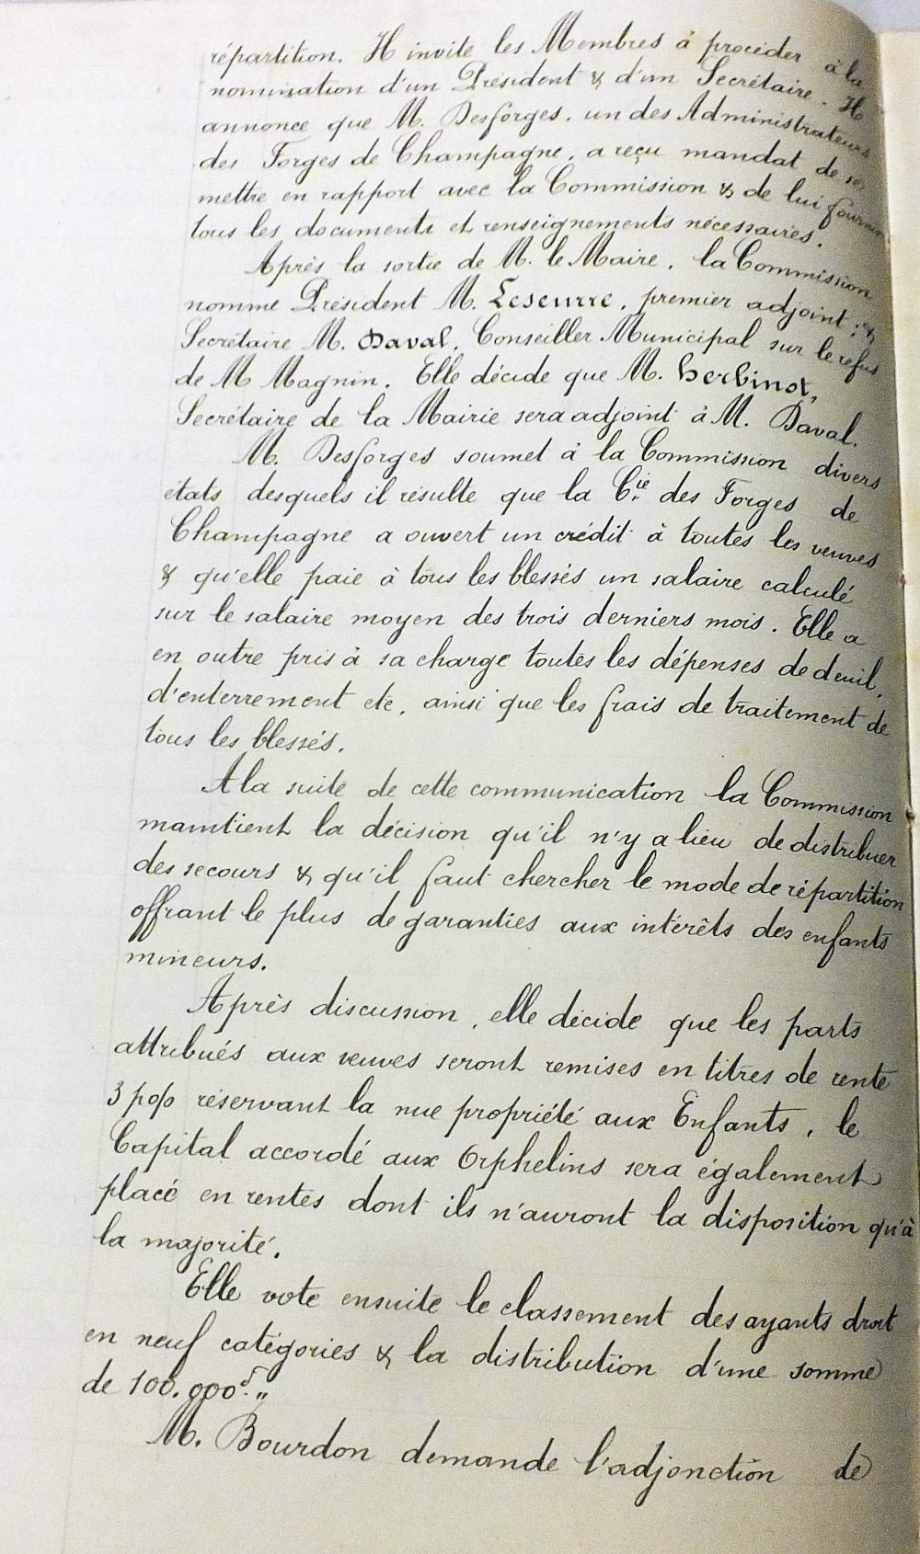 répartition. Il invite les Membres à procéder à la
nomination d'un Président & d'un Secrétaire. Il
annonce que M. Desforges, un des Administrateurs
des Forges de Champagne, a reçu mandat de se
mettre en rapport avec la Commission & de lui fournir
tous les documents et renseignements nécessaires.
Après la sortie de M. le Maire, la Commission
nomme Président M. Leseurre, premier adjoint; &
Secrétaire M. Daval, Conseiller Municipal sur le refus
de M Magnin. Elle décide que M. Herbinot,
Secrétaire de la Mairie sera adjoint à M. Daval.
M. Desforges soumet à la Commission divers
états desquels il résulte que la Cie des Forges de
Champagne a ouvert un crédit à toutes les veuves
& qu'elle paie à tous les blessés un salaire calculé
sur le salaire moyen des trois derniers mois. Elle a
en outre pris à sa charge toutes les dépenses de deuil,
d'enterrement etc, ainsi que les frais de traitement de
tous les blessés.
A la suite de cette communication la Commission
maintient la décision qu'il n'y a lieu de distribuer
des secours & qu'il faut chercher le mode de répartition
offrant le plus de garanties aux intérêts des enfants
mineurs.
Après discussion, elle décide que les parts
attribués aux veuves seront remises en titres de rente
3 p% réservant la nue propriété aux Enfants, le
Capital accordé aux Orphelins sera également
placé en rentes dont ils n'auront la disposition qu'à
la majorité.
Elle vote ensuite le classement des ayants droit
en neuf catégories & la distribution d'une somme
de 100.000f."
M. Bourdon demande l'adjonction de